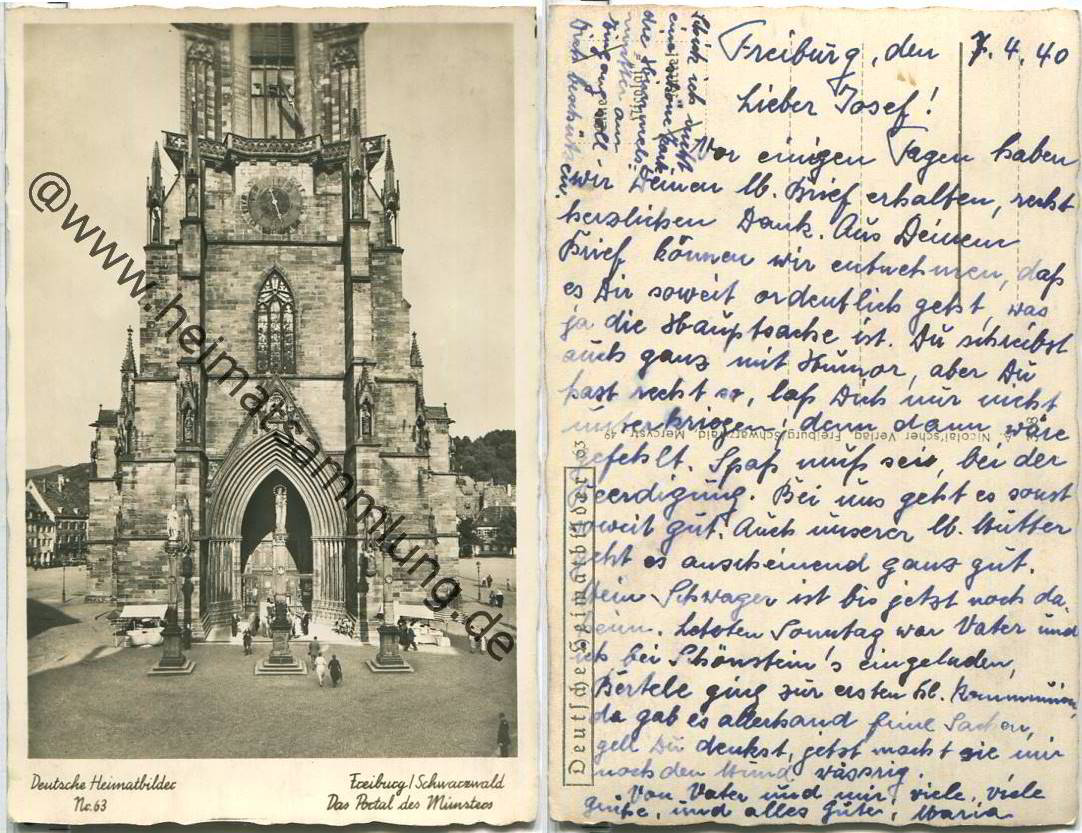 @www.heimatsammlung.de
Deutsche Heimatbilder
Nr. 63
Freiburg/Schwarzwald
Das Portal des Münsters
Freiburg, den 7.4.40
Lieber Josef!
Vor einigen Tagen haben
wir Deinen lb. Brief erhalten, recht
herzlichen Dank. Aus Deinem
Brief können wir entnehmen, daß
es Dir soweit ordentlich geht, was
ja die Hauptsache ist. Du schreibst
auch ganz mit Humor, aber Du
hast recht so, laß Dich nur nicht
unterkriegen, denn dann wäre
gefehlt. Spaß muß sein, bei der
Beerdigung. Bei uns geht es sonst
soweit gut. Auch unserer lb. Mutter
geht es anscheinend ganz gut.
Dein Schwager ist bis jetzt noch da-
heim. Letzten Sonntag war Vater und
ich bei Schönstein's eingeladen,
Bertele ging zur ersten hl. Kommunion,
da gab es allerhand feine Sachen,
gell Du denkst, jetzt macht sie mir
noch den Mund wässrig.
Von Vater und mir viele, viele
grüße, und alles Gute, Maria
Schick ich nicht
eine schöne Karte
die Himmels-
mutter am
Eingang soll
Dich beschützen.
Deutsche Heimatbilder 63
Nicolai'scher Verlag, Freiburg/Schwarzwald, Mercystr. 49